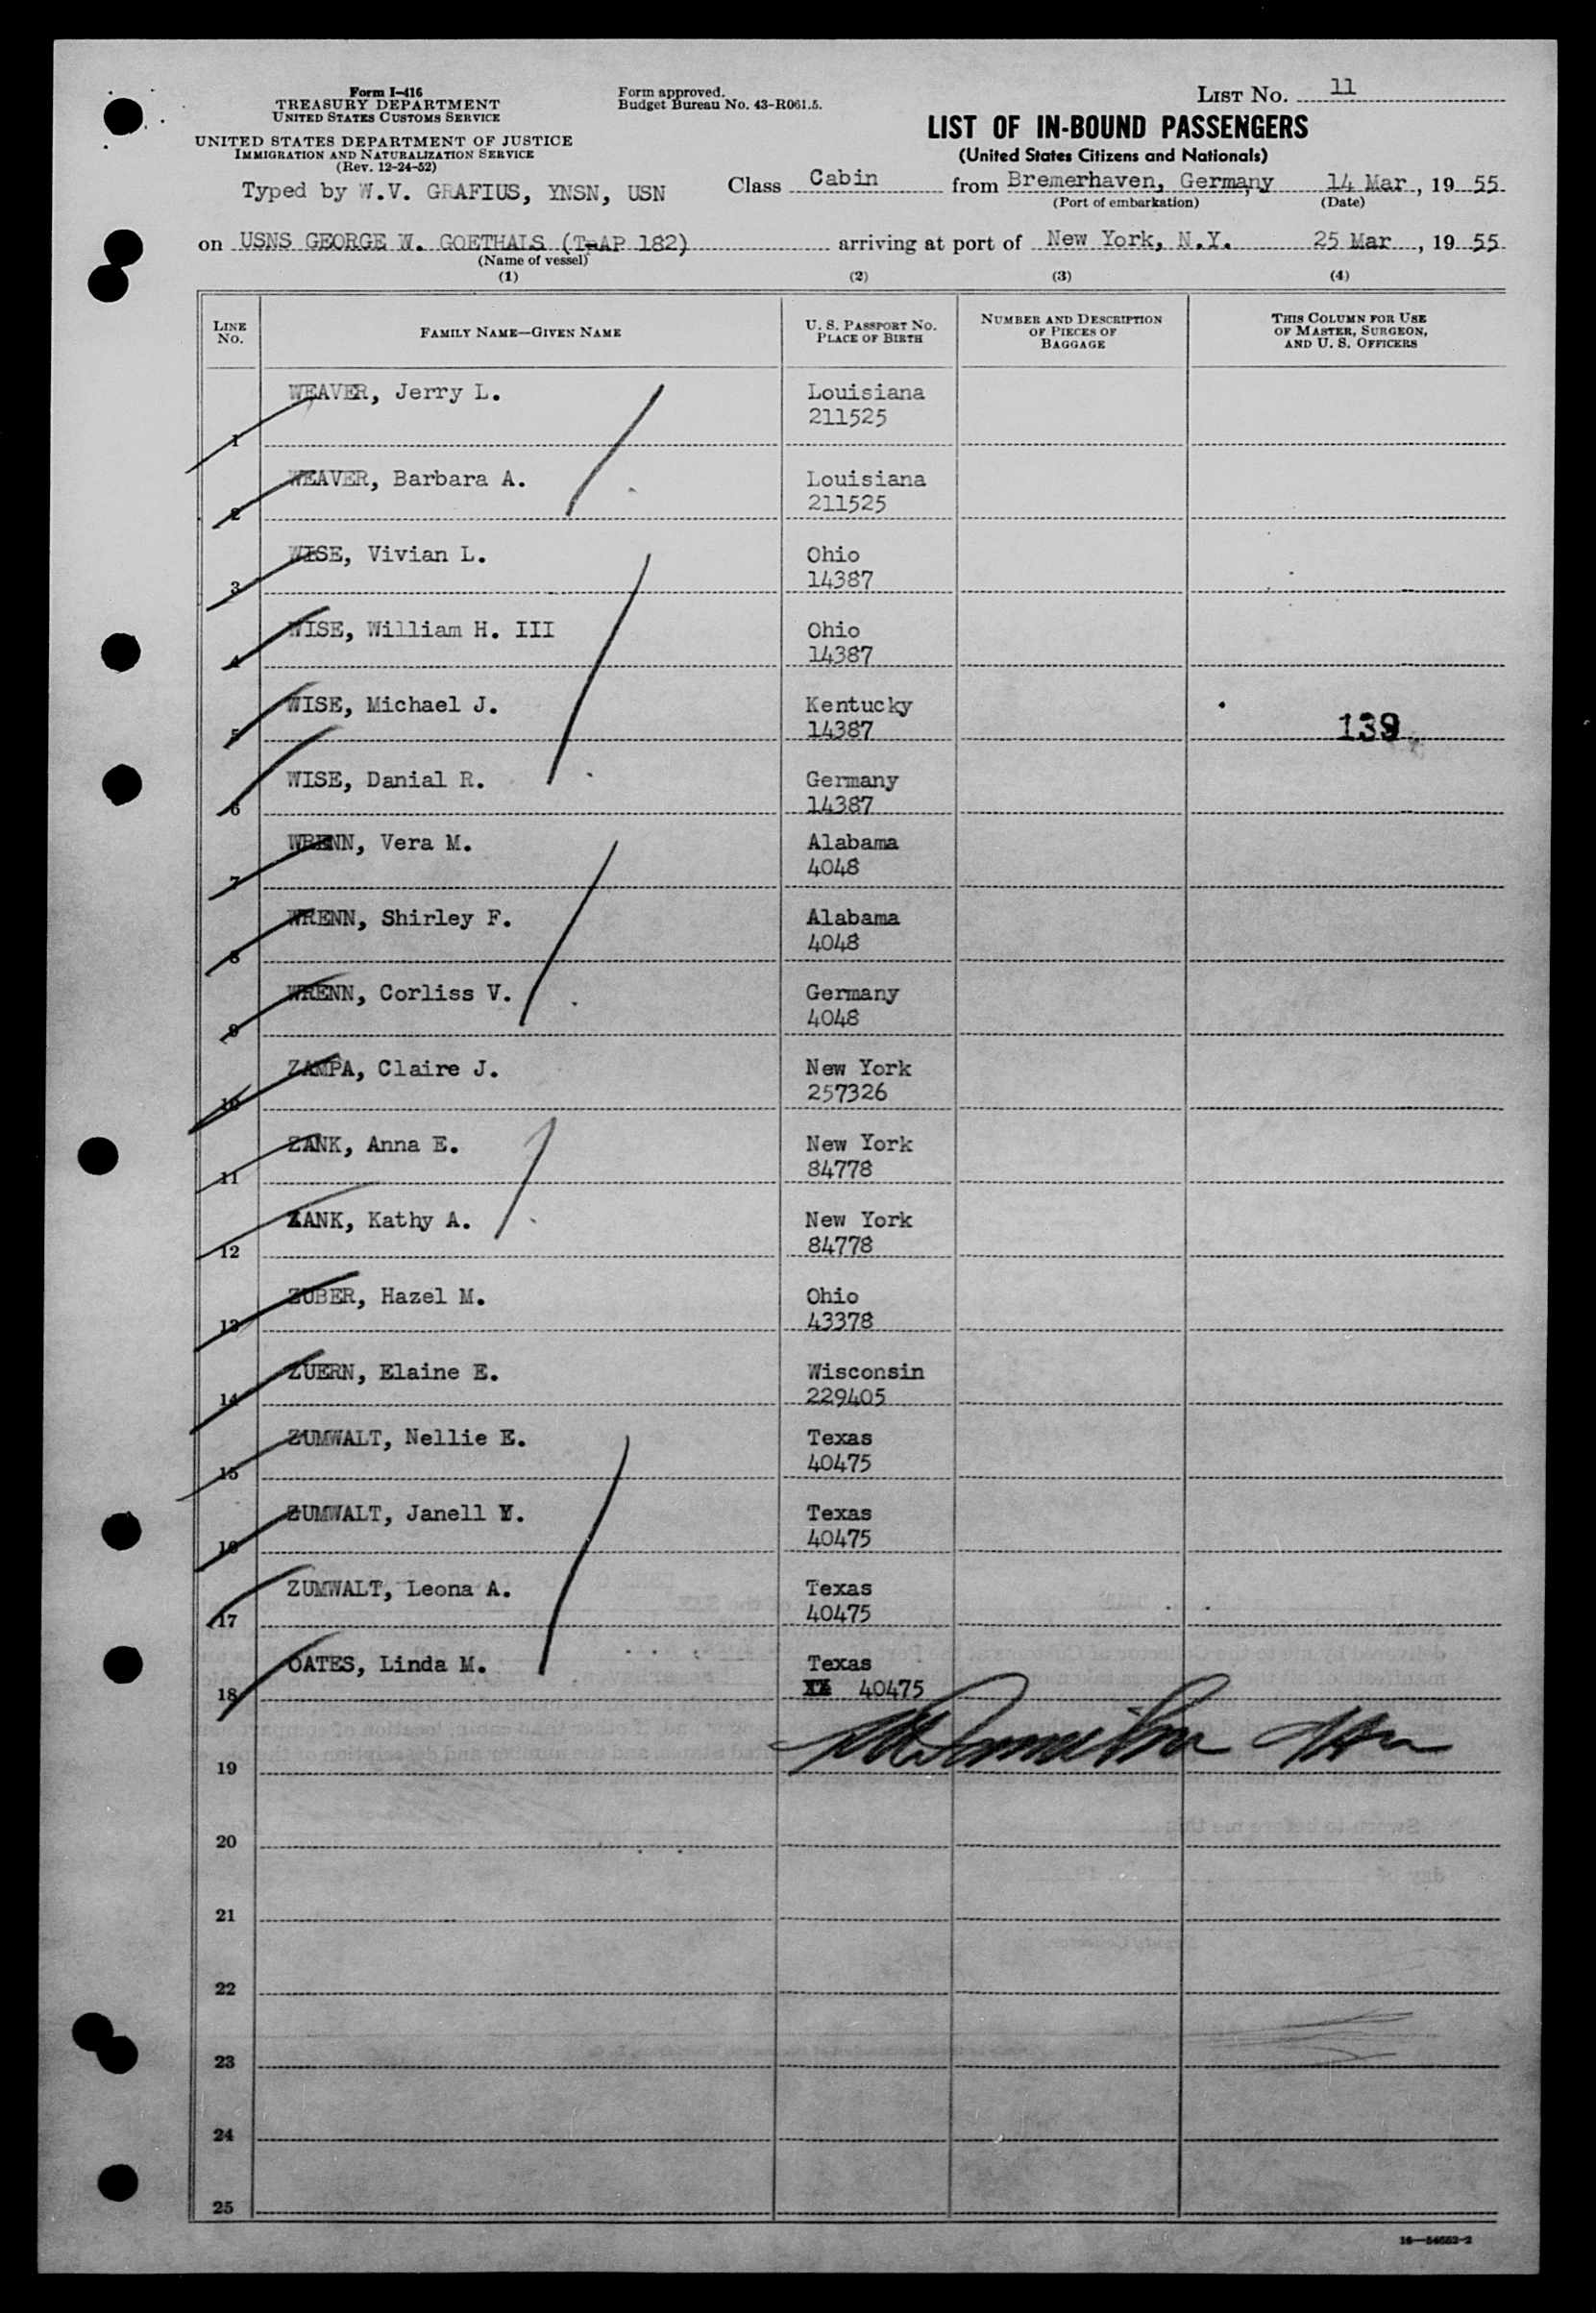 Form I-416
TREASURY DEPARTMENT
UNITED STATES CUSTOMS SERVICE
UNITED STATES DEPARTMENT OF JUSTICE
IMMIGRATION AND NATURALIZATION SERVICE
(Rev. 12-24-52)
Typed by W.V. GRAFIUS, YNSN, USN
Form approved.
Budget Bureau No. 43-R061.5.
LIST NO. 11
LIST OF IN-BOUND PASSENGERS
(United States Citizens and Nationals)
Class Cabin from Bremerhaven, Germany 14 Mar, 19 55
(Port of embarkation) (Date)
on USNS GEORGE W. GOETHALS (T-AP 182) arriving at port of New York, N.Y. 25 Mar, 19 55
(Name of vessel)
(1) (2) (3) (4)
LINE NO. FAMILY NAME—GIVEN NAME U. S. PASSPORT NO. PLACE OF BIRTH NUMBER AND DESCRIPTION OF PIECES OF BAGGAGE THIS COLUMN FOR USE OF MASTER, SURGEON, AND U. S. OFFICERS
WEAVER, Jerry L. Louisiana
1 211525
WEAVER, Barbara A. Louisiana
2 211525
WISE, Vivian L. Ohio
3 14387
WISE, William H. III Ohio
4 14387
WISE, Michael J. Kentucky
5 14387 139
WISE, Danial R. Germany
6 14387
WRENN, Vera M. Alabama
7 4048
WRENN, Shirley F. Alabama
8 4048
WRENN, Corliss V. Germany
9 4048
ZAMPA, Claire J. New York
10 257326
ZANK, Anna E. New York
11 84778
ZANK, Kathy A. New York
12 84778
ZUBER, Hazel M. Ohio
13 43378
ZUERN, Elaine E. Wisconsin
14 229405
ZUMWALT, Nellie E. Texas
15 40475
ZUMWALT, Janell Y. Texas
16 40475
ZUMWALT, Leona A. Texas
17 40475
OATES, Linda M. Texas
18 40475
19
20
21
22
23
24
25
16—54652-2